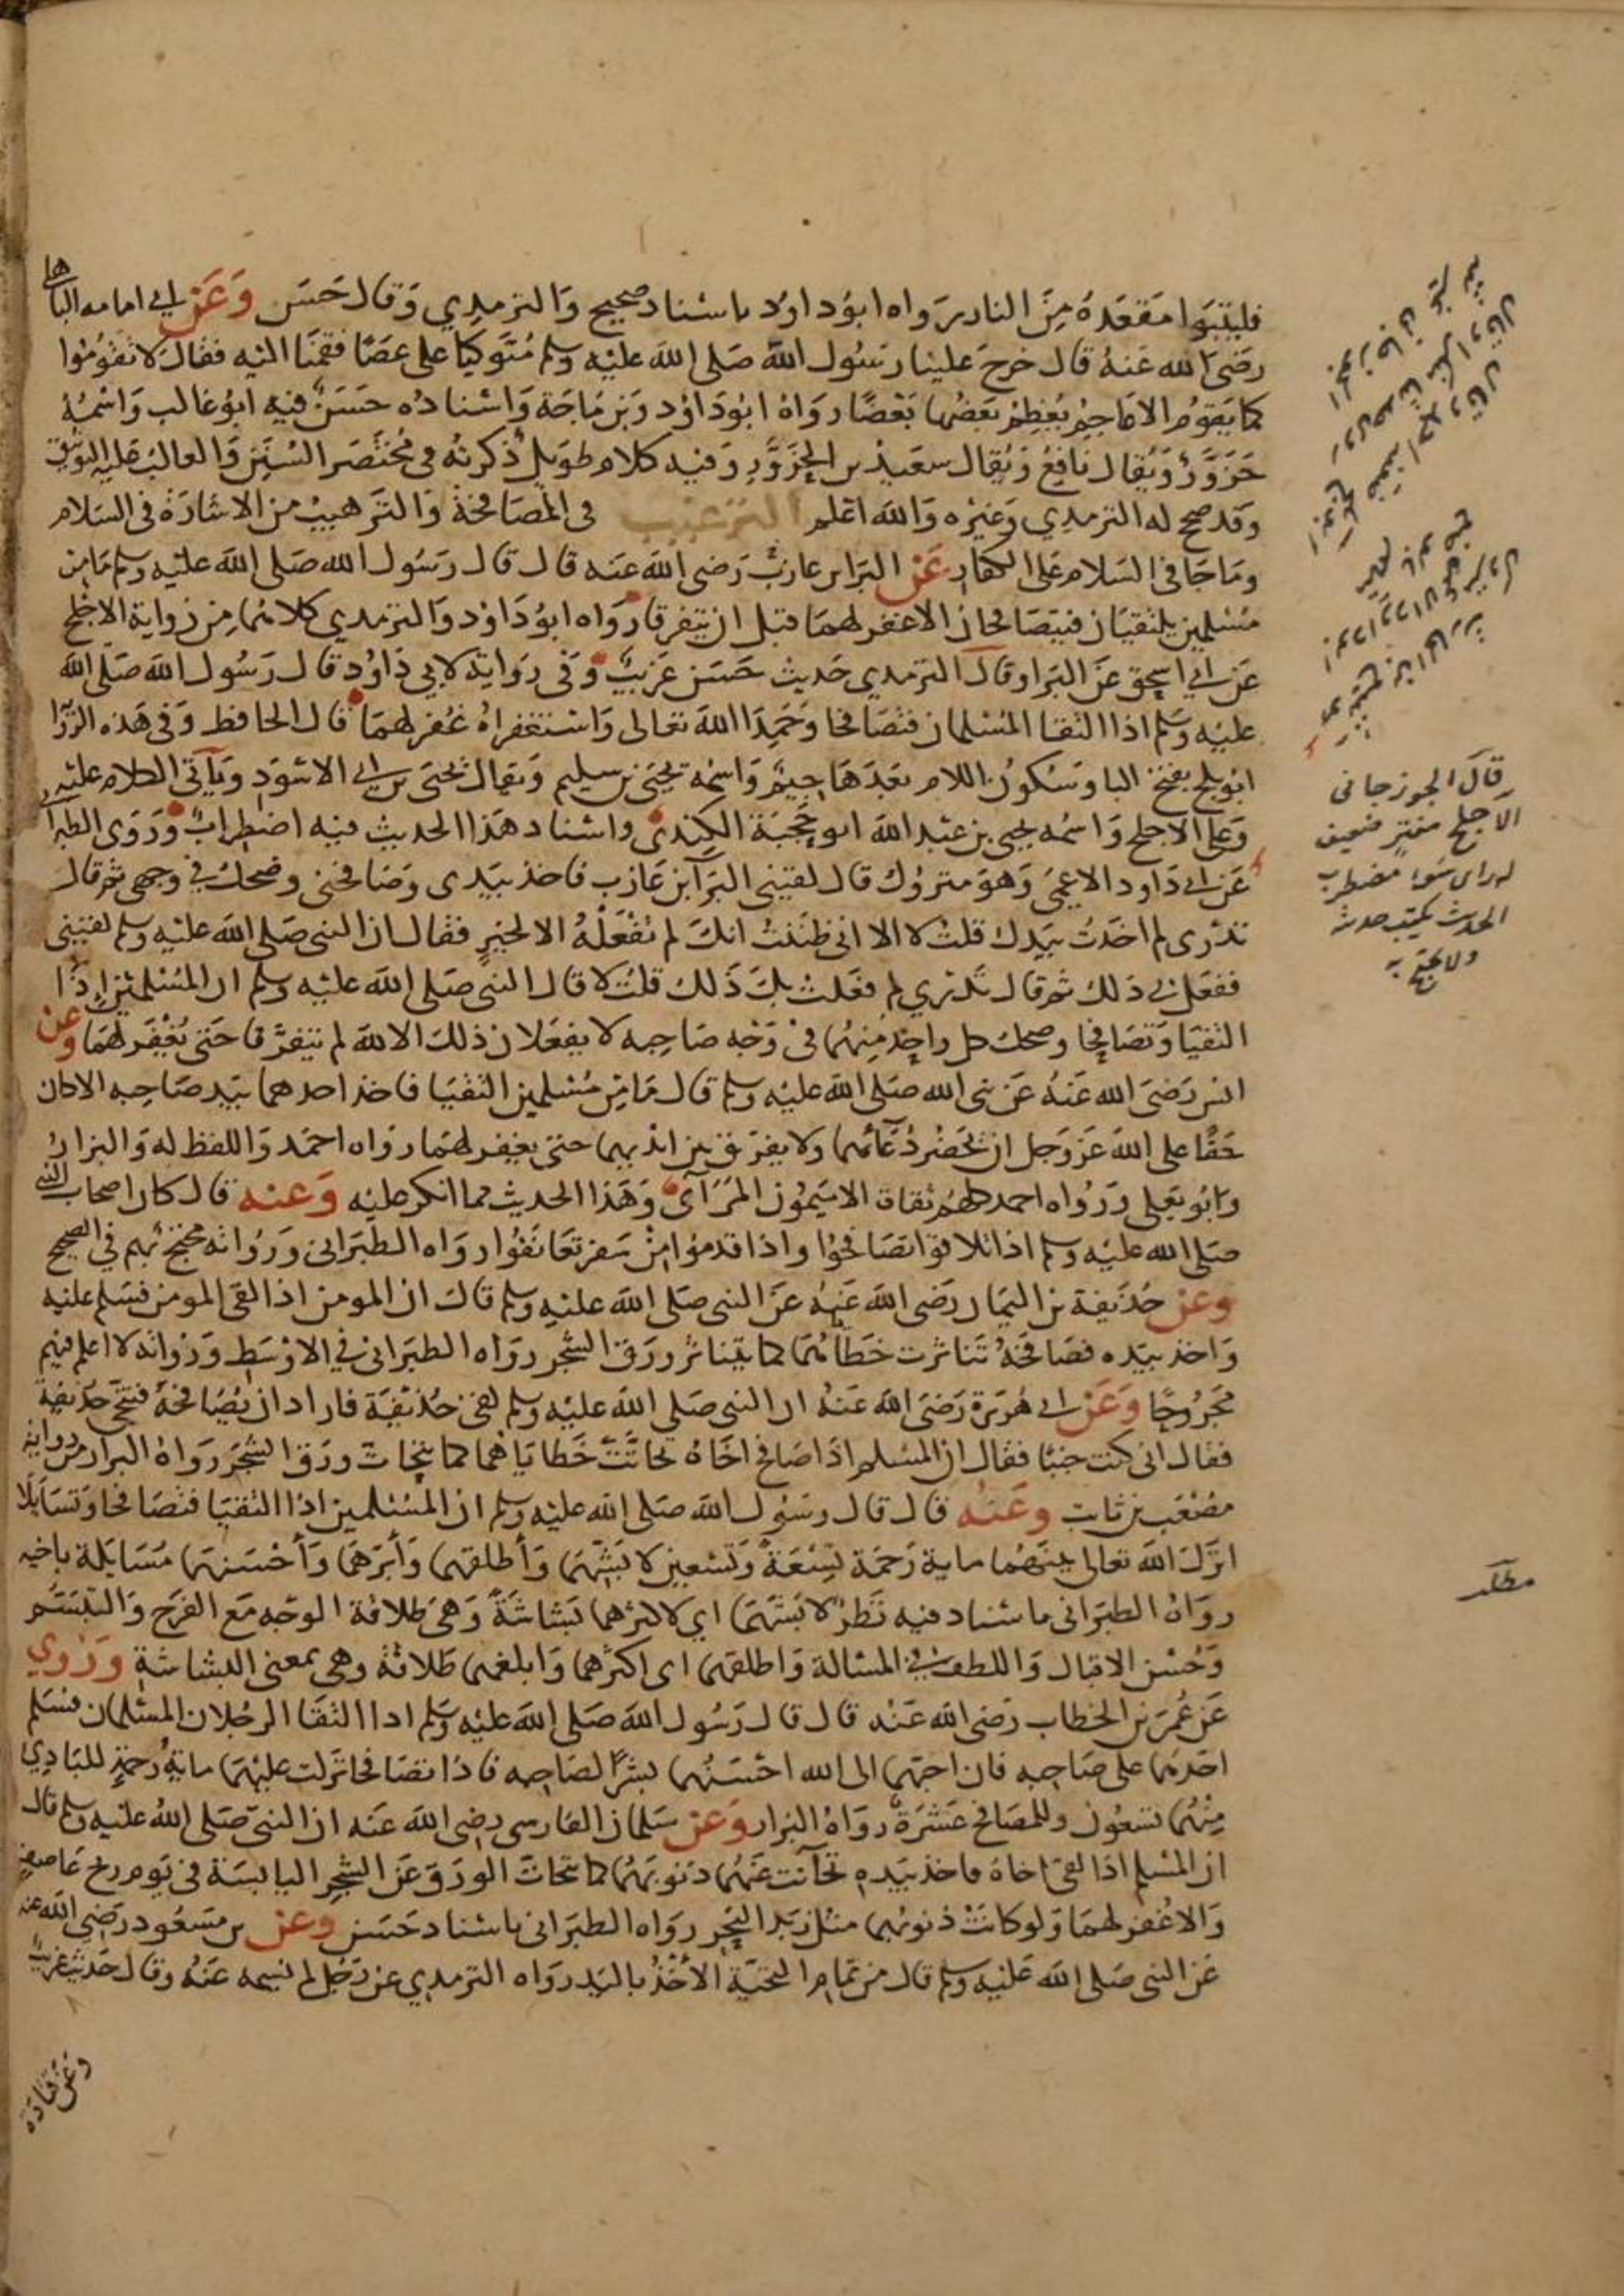 فليتبوا مقعده من النار رواه ابو داود باسناد صحيح والترمدي وقال حسن وعن ابي امامه الباهلي
رضى الله عنه قال خرج علينا رسول الله صلى الله عليه وسلم متوكيا على عصا فقمنا اليه فقال لا تقوموا
كما يقوم الاعاجم يعظم بعضها بعضا رواه ابو داود وبن ماجة واسناده حسن فيه ابو غالب واسمه
حزور ويقال نافع ويقال سعيد بن الحزور وفيه كلام طويل ذكرته في مختصر السنن والغالب عليه التوثيق
وقد صحح له الترمدي وغيره والله اعلم الترغيب في المصافحة والترهيب من الاشارة في السلام
وما جا في السلام على الكفار عن البرا بن عازب رضى الله عنه قال قال رسول الله صلى الله عليه وسلم ما من
مسلمين يلتقيان فيتصافحان الا غفر لهما قبل ان يتفرقا رواه ابو داود والترمدي كلاهما من رواية الاجلح
عن ابي اسحق عن البرا وقال الترمدي حديث حسن غريب وفي رواية لابي داود قال رسول الله صلى الله
عليه وسلم اذا التقا المسلمان فتصافحا وحمدا الله تعالى واستغفراه غفر لهما قال الحافظ وفي هذه الروا
ابو بلج بفتح البا وسكون اللام بعدها جيم واسمه يحيى بن سليم ويقال يحيى بن ابي الاسود ويآتي الكلام عليه
وعلى الاجلح واسمه يحيى بن عبد الله ابو حجية الكندي واسناد هذا الحديث فيه اضطراب وروى الطبراني
عن ابي داود الاعمى وهو متروك قال لقيني البرآ بن عازب فاخذ بيدى وصافحني وضحك في وجهي ثم قال
تدرى لم اخذت بيدك قلت لا الا اني ظننت انك لم تفعله الا لخير فقال ان النبي صلى الله عليه وسلم لقيني
ففعل بي ذلك ثم قال تدري لم فعلت بك ذلك قلت لا قال النبي صلى الله عليه وسلم ان المسلمين اذا
التقيا وتصافحا وضحك كل واحد منهما في وجه صاحبه لا يفعلان ذلك الا لله لم يتفرقا حتى يغفر لهما وعن
انس رضى الله عنه عن نبي الله صلى الله عليه وسلم قال ما من مسلمين التقيا فاخذ احدهما بيد صاحبه الا كان
حقا على الله عز وجل ان يحضر دعآئهما ولا يفرق بين ايديهما حتى يغفر لهما رواه احمد واللفظ له والبزار
وابو يعلى ورواه احمد كلهم ثقات الا ميمون المرآئى وهذا الحديث مما انكر عليه وعنه قال كان اصحاب النبي
صلى الله عليه وسلم اذا تلاقوا تصافحوا واذا قدموا من سفر تعانقوا رواه الطبراني ورواته محتج بهم في الصحيح
وعن حذيفة بن اليمان رضى الله عنه عن النبي صلى الله عليه وسلم قال ان المومن اذا لقى المومن فسلم عليه
واخذ بيده فصافحه تناثرت خطاياهما كما يتناثر ورق الشجر رواه الطبراني في الاوسط ورواته لا اعلم فيهم
مجروحا وعن ابي هريرة رضى الله عنه ان النبي صلى الله عليه وسلم لقى حذيفة فاراد ان يصافحه فتنحى حذيفة
فقال اني كنت جنبا فقال ان المسلم اذا صافح اخاه تحاتت خطاياهما كما يتحات ورق الشجر رواه البزار من رواية
مصعب بن ثابت وعنه قال قال رسول الله صلى الله عليه وسلم ان المسلمين اذا التقيا فتصافحا وتسايلا
انزل الله تعالى بينهما ماية رحمة تسعة وتسعين لابشهما واطلقهما وأبرهما وأحسنهما مسايلة باخيه
رواه الطبراني باسناد فيه نظر لابشهما اي لاكثرهما بشاشة وهى طلاقة الوجه مع الفرح والتبسم
وحسن الاقبال واللطف في المسالة واطلقهما اى اكثرهما وابلغهما طلاقة وهي بمعنى البشاشة وروي
عن عمر بن الخطاب رضى الله عنه قال قال رسول الله صلى الله عليه وسلم اذا التقا الرجلان المسلمان فسلم
احدهما على صاحبه فان احبهما الى الله احسنهما بشرا لصاحبه فاذا تصافحا نزلت عليهما ماية رحمة للبادي
منهما تسعون وللمصافح عشرة رواه البزار وعن سلمان الفارسي رضى الله عنه ان النبي صلى الله عليه وسلم قال
ان المسلم اذا لقى اخاه فاخذ بيده تحآتت عنهما ذنوبهما كما تتحات الورق عن الشجر اليابسة في يوم ريح عاصف
والا غفر لهما ولو كانت ذنوبهما مثل زبد البحر رواه الطبراني باسناد حسن وعن بن مسعود رضى الله عنه
عن النبي صلى الله عليه وسلم قال من تمام التحية الأخذ باليد رواه الترمدي عن رجل لم يسمه عنه وقال حديث غريب
وعن قتادة
قال الجوزجاني
الاجلح مفتر ضعيف
له راى سوء مضطرب
الحديث يكتب حديثه
ولا يحتج به
مطلب